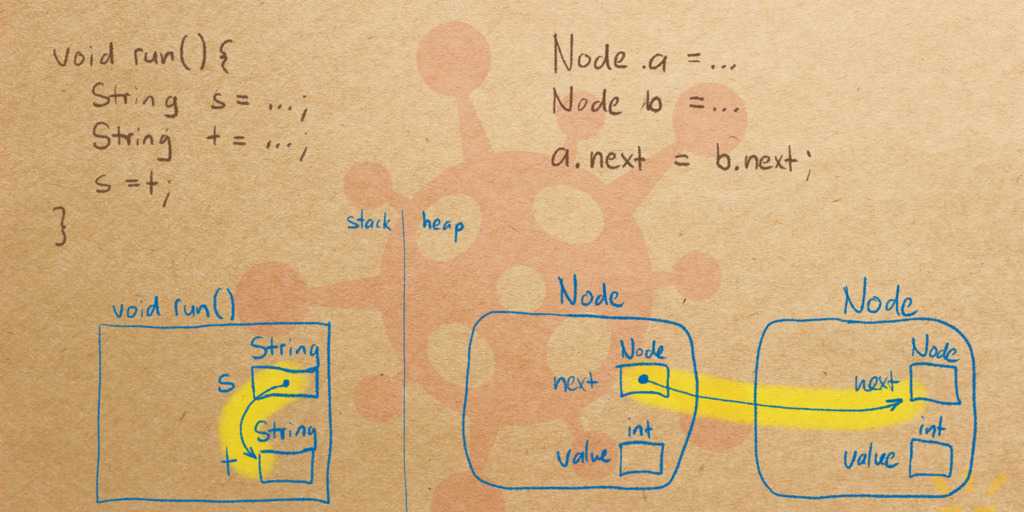 void run() {
String s = ...;
String t = ...;
s = t;
}
Node a = ...
Node b = ...
a.next = b.next;
stack
heap
void run()
String
s
String
t
Node
Node
next
int
value
Node
Node
next
int
value